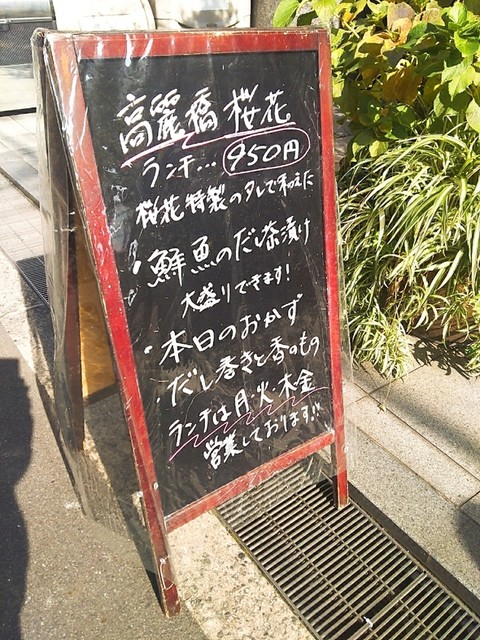 高麗橋 桜花
ランチ… 950円
桜花特製のタレで和えた
・鮮魚のだし茶漬け
大盛りできます!
・本日のおかず
・だし巻きと香のもの
ランチは月・火・木・金
営業しております!!